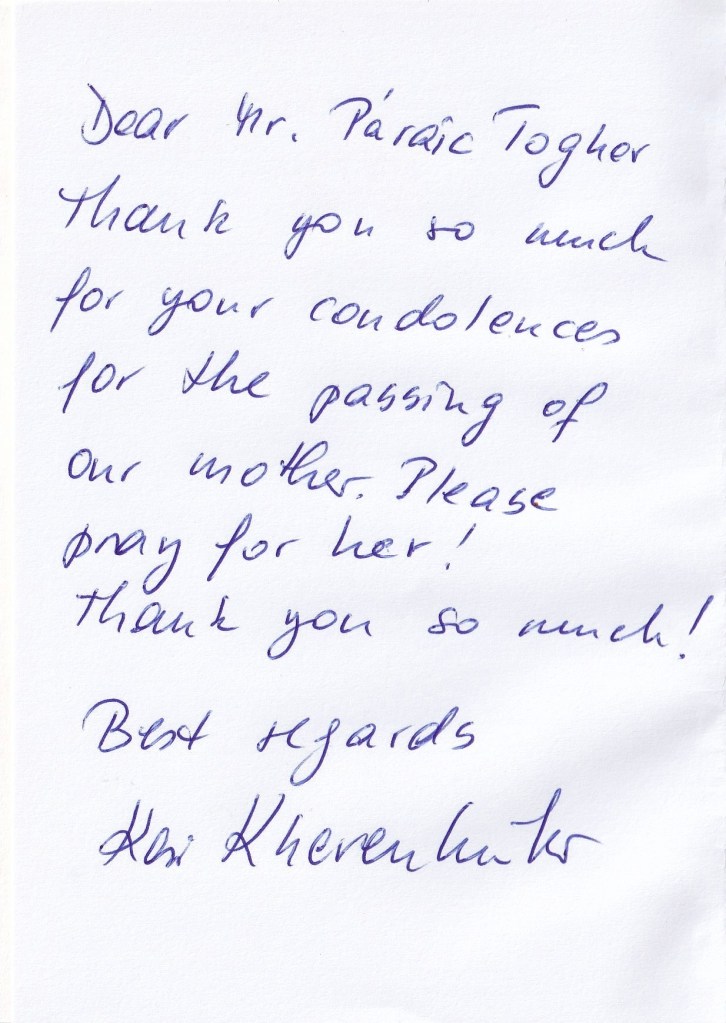 Dear Mr. Páraic Togher
Thank you so much
for your condolences
for the passing of
our mother. Please
pray for her!
Thank you so much!
Best regards